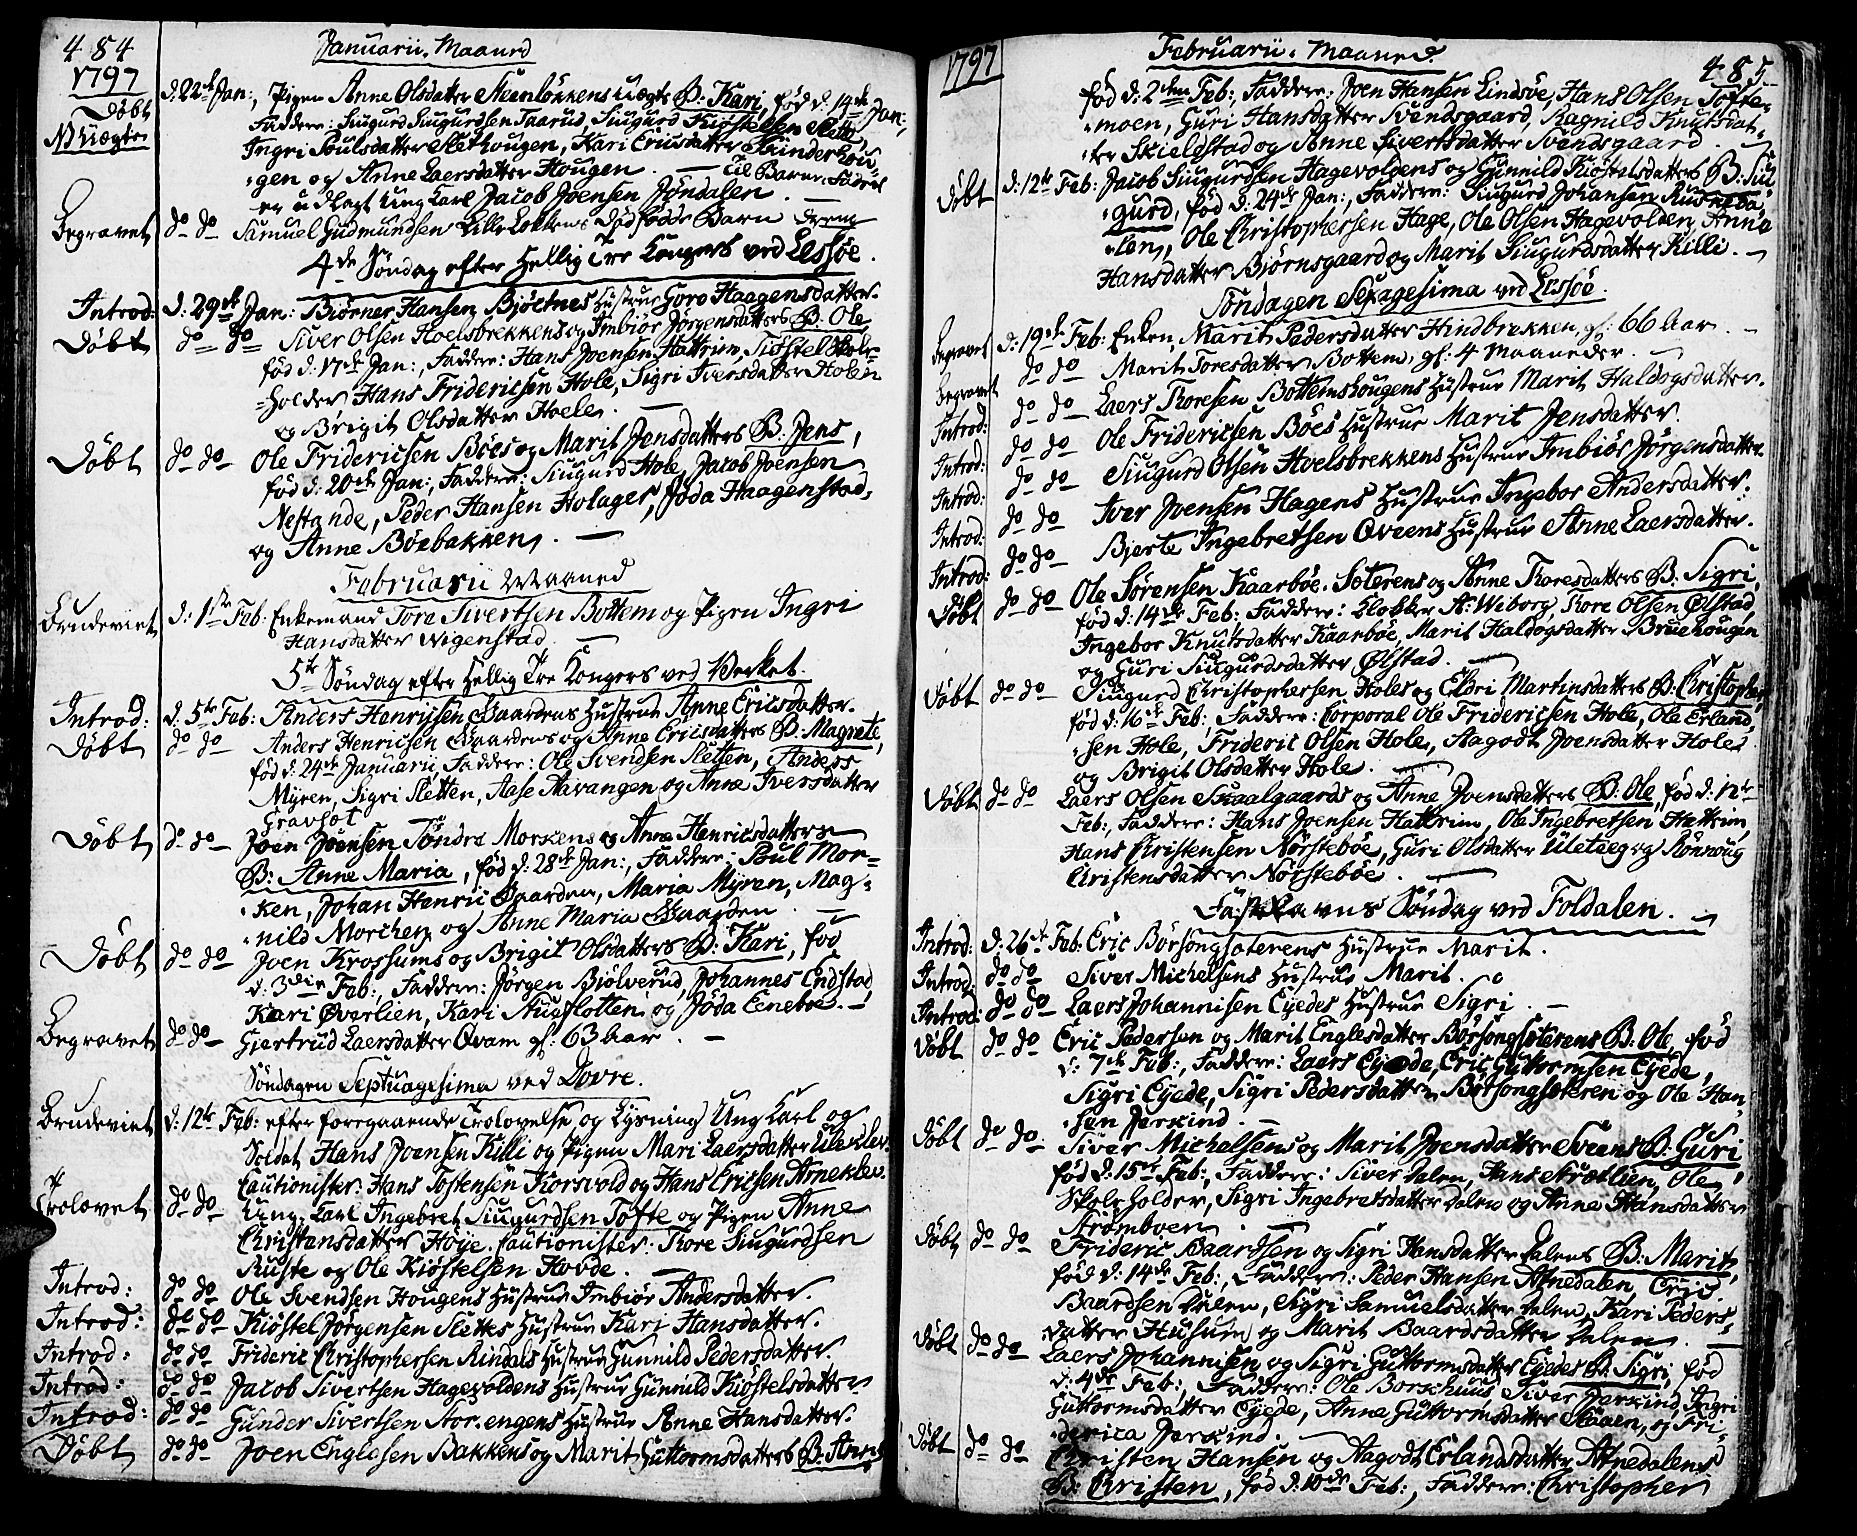 484
Januarii. Maaned
1797
Døbt d: 22de Jan:, Pigen Anne Olsdatter Steenløkkens uægte B: Kari, fød d: 14de Jan:,
N: Uægte
Faddere: Siugurd Siugurdsen Faarud, Siugurd Kiøstelsen Slette,
Ingri Poulsdatter Slethougen, Kari Ericsdatter
gen og Anne Laersdatter Hougen. — Til Barne-Fader
er udlagt Ung Karl Jacob Joensen Jøndalen. —
Begravet do do Samuel Gudmundsen Lille Løkkens dødfødde Barn
4de Søndag efter Hellig Tre Kongers ved Lessøe.
Introd: d: 29de Jan: Biørner Hansen Bjøltnes Hustrue Goro Haagensdatter.
Døbt do do Siver Olsen Hoelsbrekkens og Imbiør Jørgensdatters B: Ole,
fød d: 17de Jan:, Faddere: Hans Joensen Hattrim, Kiøstel Skole-
=holder Hans Fridericsen Hole, Sigri Iversdatter Holen
og Brigit Olsdatter Hoele. —
Døbt do do Ole Fridericsen Böes og Marit Jensdatters B: Jens,
fød d: 20de Jan:, Faddere: Siugurd Hole, Jacob Joensen
Nestande, Peder Hansen Holager, Jøda Haagenstad,
og Anne Böebakken. —
Februarii Maaned
Brudeviet d: 1ste Feb: Enkemand Tore Sivertsen Bottem og Pigen Ingri
Hansdatter Vigenstad. —
5te Søndag efter Hellig Tre Kongers ved Verket.
Introd: d: 5te Feb: Anders Henricsen Gaardens Hustrue Anne Ericsdatter.
Døbt do do Anders Henricsen Gaardens og Anne Ericsdatters B: Magrete,
fød d: 24de Januarii, Faddere: Ole Svendsen Sletten, Anders
Myren, Sigri Sletten, Aase Aavangen og Anne Iversdatter
Døbt do do Joen Joensen Søndre Morkens og Anne Henricsdatters
B: Anne Maria, fød d: 28de Jan:, Faddere: Poul Mor-
=ken, Johan Henric Gaarden, Maria Myren, Mag-
=nild Morchen og Anne Maria Gaarden. —
Døbt do do Joen Krossums og Brigit Olsdatters B: Kari, fød
d: 3die Feb:, Faddere: Jørgen Bjølverud, Johannes Endstad,
Kari Øverlien, Kari Augflotten og Jøda Eneboe. —
Begravet do do Giertrud Laersdatter Qvam gl: 63 Aar. —
Søndagen Septuagesima ved Dovre.
Brudeviet d: 12te Feb: efter foregaaende Trolovelse og Lysning Ung Karl og
Soldat Hans Joensen Killi og Pigen Mari Laersdatter Uleklev.
Cautionister: Hans Tostensen Korsvold og Hans Ericsen Arneklev.
Trolovet do do Ung Karl Ingebret Siugurdsen Tofte og Pigen Anne
Christensdatter Hoye. Cautionister: Tore Siugurdsen
Ruste og Ole Kiøstelsen Hovde. —
Introd: do do Ole Svendsen Hougens Hustrue Imbiør Andersdatter.
Introd: do do Kiøstel Jørgensen Slettes Hustrue Kari Hansdatter.
Introd: do do Frideric Christophersen Rindals Hustrue Gunnild Pedersdatter.
Introd: do do Jacob Sivertsen Hagevoldens Hustrue Gunnild Kiøstelsdatter
Introd: do do Gunder Sivertsen Storengens Hustrue Anne Hansdatter.
Døbt do do Joen Englesen Bakkens og Marit Guttormsdatters B: Anne
1797
Februarii. Maaned.
485
fød d: 2den Feb:, Faddere: Joen Hansen Lindsøe, Hans Olsen Tofte-
=moen, Guri Hansdatter Svendsgaard, Ragnild Knutsdat-
=ter Skieldstad og Anne Sivertsdatter Svendsgaard. —
Døbt d: 12te Feb: Jacob Siugurdsen Hagevoldens og Gunnild Kiøstelsdatters B: Siu-
gurd, fød d: 24de Jan:, Faddere: Siugurd Johansen Rusneda-
len, Ole Christophersen Hage, Ole Olsen Hagevolden, Anne
Hansdatter Bjørnsgaard og Marit Siugurdsdatter Killi. —
Søndagen Sexagesima ved Lessøe.
Begravet d: 19de Feb: Enken, Marit Pedersdatter Hindbrekken, gl: 66 Aar. —
Begravet do do Marit Toresdatter Bottem, gl: 4 Maaneder. —
Introd: do do Laers Thoresen Bottemshougens Hustrue Marit Haldogsdatter.
Introd: do do Ole Fridericsen Böes Hustrue Marit Jensdatter.
Introd: do do Siugurd Olsen Hoelsbrekkens Hustrue Imbiør Jørgensdatter
Introd: do do Iver Joensen Hagens Hustrue Ingebor Andersdatter.
Introd: do do Bjerte Ingebretsen Qveens Hustrue Anne Laersdatter.
Døbt do do Ole Sørensen Kaarbøe-Sæterens og Anne Thoresdatters B: Sigri,
fød d: 14de Feb:, Faddere: Klokker A: Wiborg, Tore Olsen Ølstad,
Ingebor Knutsdatter Kaarbøe, Marit Haldogsdatter Bruehougen
og Guri Siugurdsdatter Ølstad. —
Døbt do do Siugurd Christophersen Holes og Eldri Martinsdatters B: Christopher,
fød d: 16de Feb:, Faddere: Corporal Ole Fridericsen Hole, Ole Erland-
=sen Hole, Frideric Olsen Hole, Aagodt Joensdatter Hole
og Brigit Olsdatter Hole. —
Døbt do do Laers Olsen Skaalgaards og Anne Joensdatters B: Ole, fød d: 12te
Feb:, Faddere: Hans Joensen Hattrim, Ole Ingebretsen Hattrim,
Hans Christensen Nørstebøe, Guri Olsdatter og Rønnoug
Christensdatter Nørstebøe. —
Fastelavns Søndag ved Foldalen. —
Introd: d: 26de Feb: Eric Børsongsæterens Hustrue Marit.
Introd: do do Siver Michelsens Hustrue Marit.
Introd: do do Laers Johannisen Eyedes Hustrue Sigri. —
Døbt do do Eric Pedersen og Marit Englesdatter Børsongsæterens B: Ole, fød
d: 7de Feb:, Faddere: Laers Eyede, Eric Guttormsen Eyede,
Sigri Eyede, Sigri Pedersdatter Børsongsæteren og Ole Han-
=sen Jerkind. —
Døbt do do Siver Michelsens og Marit Joensdatter Sveens B: Guri,
fød d: 15de Feb:, Faddere: Siver Dalen, Hans Krotlien, Ole
Skoleholder, Sigri Ingebretsdatter Dalen og Anne Hansdatter
Strømboen. —
Døbt do do Frideric Baardsen og Sigri Hansdatter Dalens B: Marit,
fød d: 14de Feb:, Faddere: Peder Hansen Atnedalen, Eric
Baardsen Dalen, Sigri Samuelsdatter Dalen, Kari Peders-
datter Husum og Marit Baardsdatter Dalen. —
Døbt do do Laers Johannisen og Sigri Guttormsdatter Eyedes B: Sigri, fød
d: 4de Feb:, Faddere: Ole Borschuus, Siver Jerkind, Ingri
Guttormsdatter Eyede, Anne Guttormsdatter Slaaen, og Fri-
=derica Jerkind. —
Døbt do do Christen Hansen og Aagodt Erlandsdatter Atnedalens
B: Christen, fød d: 10de Feb:, Faddere: Christopher